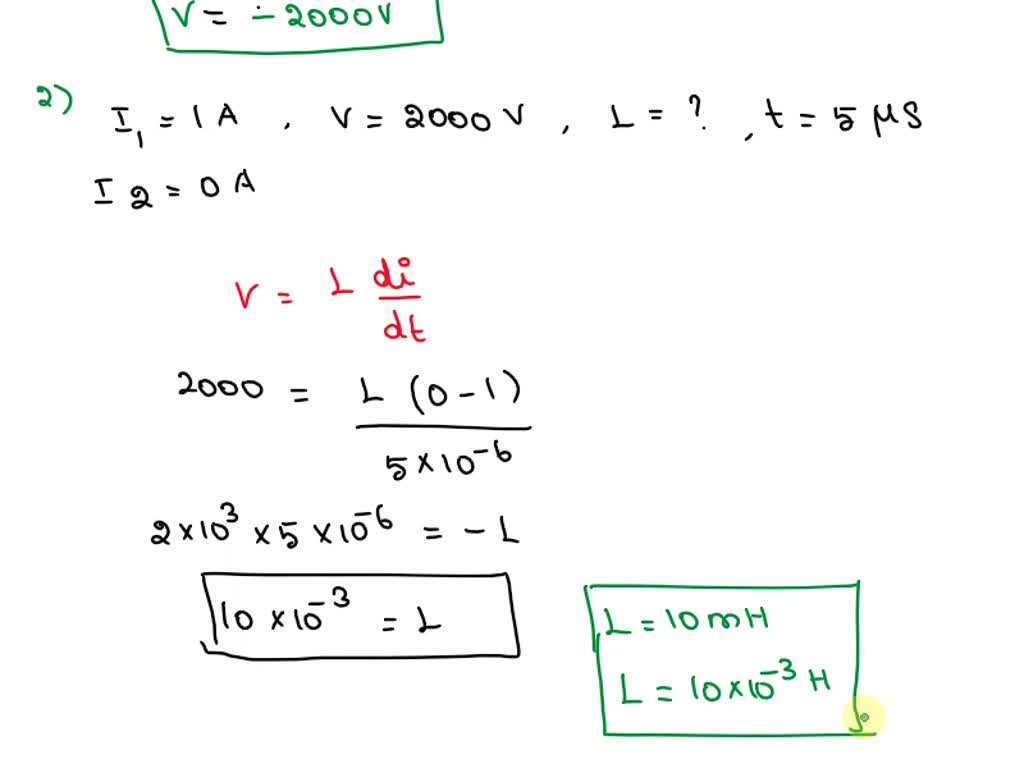 V = -2000V
2) I₁ = 1 A , V = 2000 V , L = ? , t = 5 μS
I 2 = 0 A
V = L di/dt
2000 = L (0-1) / 5×10⁻⁶
2×10³ × 5 ×10⁻⁶ = - L
10 ×10⁻³ = L
L = 10 mH
L = 10×10⁻³ H